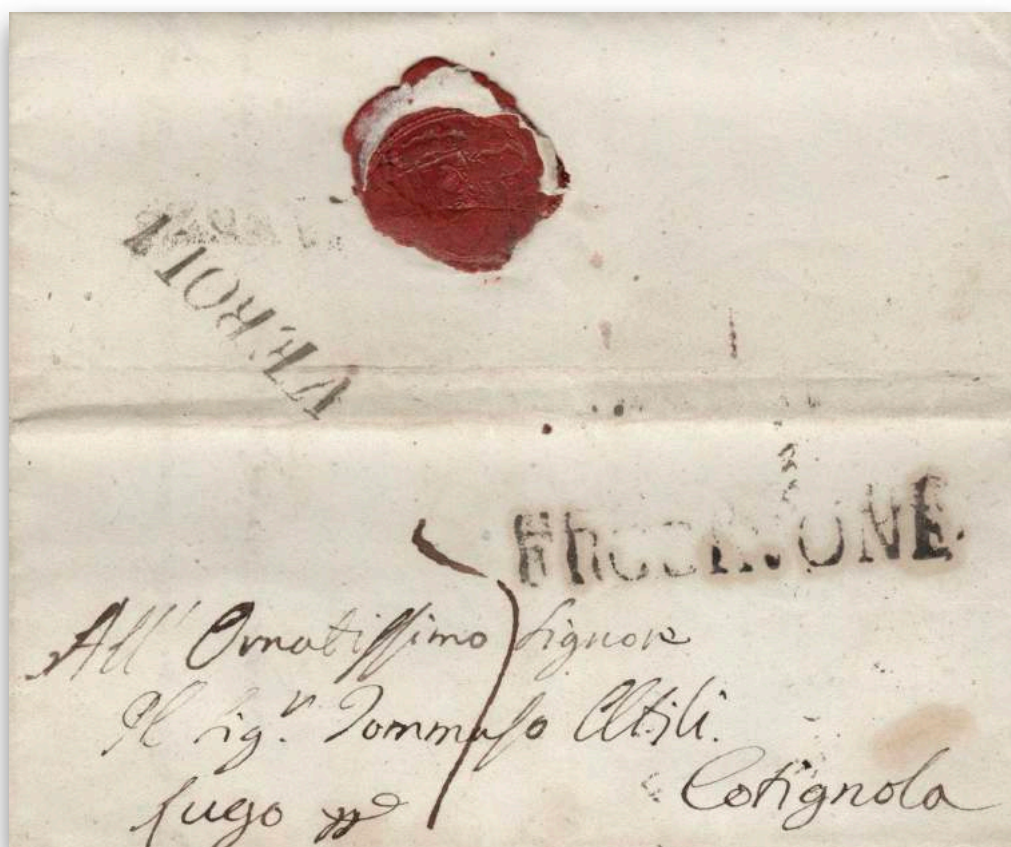 VEROLI
FROSINONE
All' Ornatissimo Signore
Il Sig.r Tommaso
Lugo Cotignola